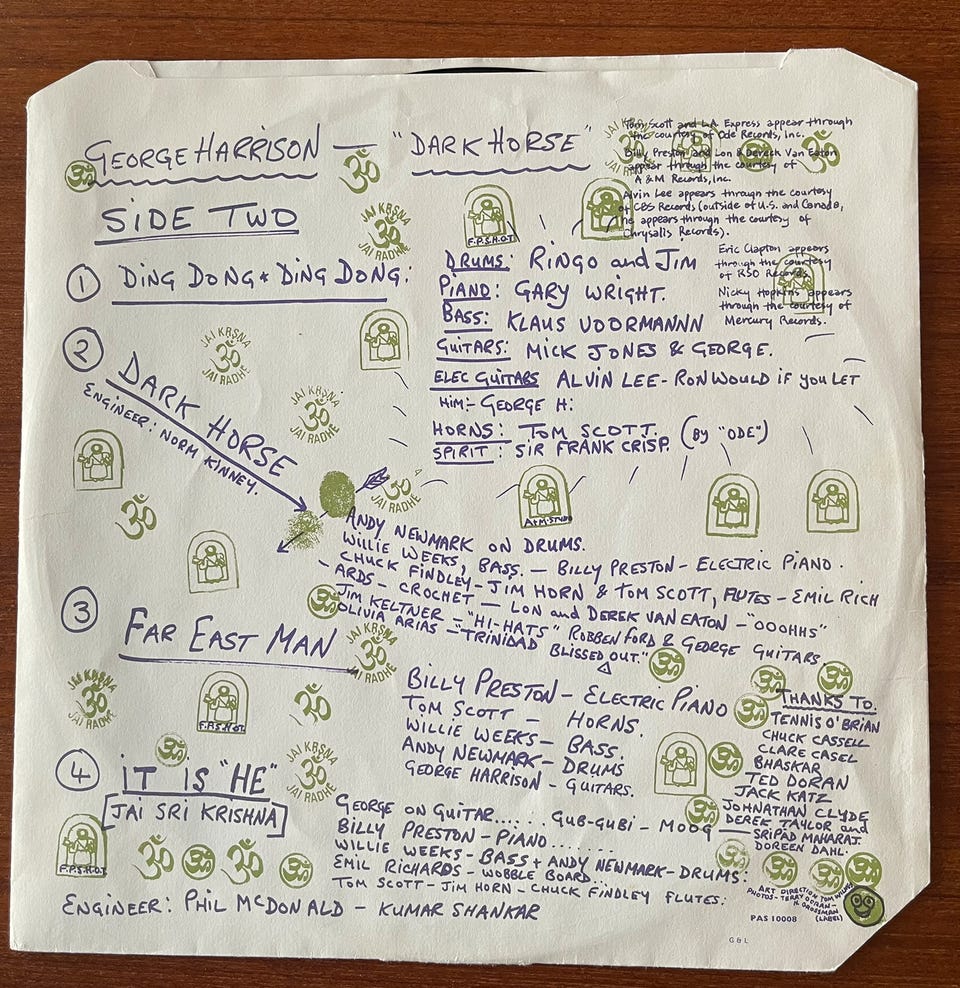 GEORGE HARRISON — "DARK HORSE"
SIDE TWO
Tom Scott and L.A. Express appear through
the courtesy of Ode Records, Inc.
Billy Preston and Lon & Dereck Van Eaton
appear through the courtesy of
A & M Records, Inc.
Alvin Lee appears through the courtesy
of CBS Records (outside of U.S. and Canada,
he appears through the courtesy of
Chrysalis Records).
Eric Clapton appears
through the courtesy
of RSO Records.
Nicky Hopkins appears
through the courtesy of
Mercury Records.
① DING DONG + DING DONG:
DRUMS: RINGO and JIM
PIANO: GARY WRIGHT.
BASS: KLAUS VOORMANNN
GUITARS: MICK JONES & GEORGE.
ELEC GUITARS ALVIN LEE - RON WOULD IF YOU LET
HIM:- GEORGE H:
HORNS: TOM SCOTT. (BY "ODE")
SPIRIT: SIR FRANK CRISP.
② DARK HORSE
ENGINEER: NORM KINNEY.
ANDY NEWMARK ON DRUMS.
WILLIE WEEKS, BASS. — BILLY PRESTON - ELECTRIC PIANO.
CHUCK FINDLEY - JIM HORN & TOM SCOTT, FLUTES - EMIL RICH
-ARDS - CROCHET — LON and DEREK VAN EATON - "OOOHHS"
JIM KELTNER - "HI-HATS" ROBBEN FORD & GEORGE GUITARS
OLIVIA ARIAS - "TRINIDAD BLISSED OUT."
③ FAR EAST MAN
BILLY PRESTON - ELECTRIC PIANO
TOM SCOTT - HORNS.
WILLIE WEEKS - BASS.
ANDY NEWMARK - DRUMS
GEORGE HARRISON - GUITARS.
THANKS TO.
TENNIS O'BRIAN
CHUCK CASSELL
CLARE CASEL
BHASKAR
TED DORAN
JACK KATZ
JOHNATHAN CLYDE
DEREK TAYLOR and
SRIPAD MAHARAJ.
DOREEN DAHL.
④ IT IS "HE"
[JAI SRI KRISHNA]
GEORGE ON GUITAR...... GUB-GUBI - MOOG
BILLY PRESTON - PIANO........
WILLIE WEEKS - BASS + ANDY NEWMARK - DRUMS:
EMIL RICHARDS - WOBBLE BOARD
TOM SCOTT - JIM HORN - CHUCK FINDLEY FLUTES:
ENGINEER: PHIL McDONALD - KUMAR SHANKAR
ART DIRECTION TOM WILKES
PHOTOS - TERRY DORAN -
H. GROSSMAN
(LABEL)
PAS 10008
G & L
JAI KRSNA
ॐ
JAI RADHE
JAI KRSNA
ॐ
JAI RADHE
JAI KRSNA
ॐ
JAI RADHE
JAI KRSNA
ॐ
JAI RADHE
F.P.S.H.O.T.
A&M STUDIO
F.P.S.H.O.T.
F.P.S.H.O.T.